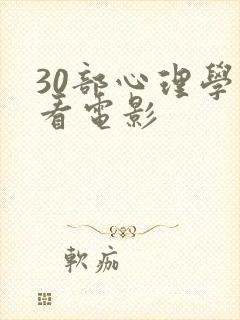 30部心理學
看電影
軟痂